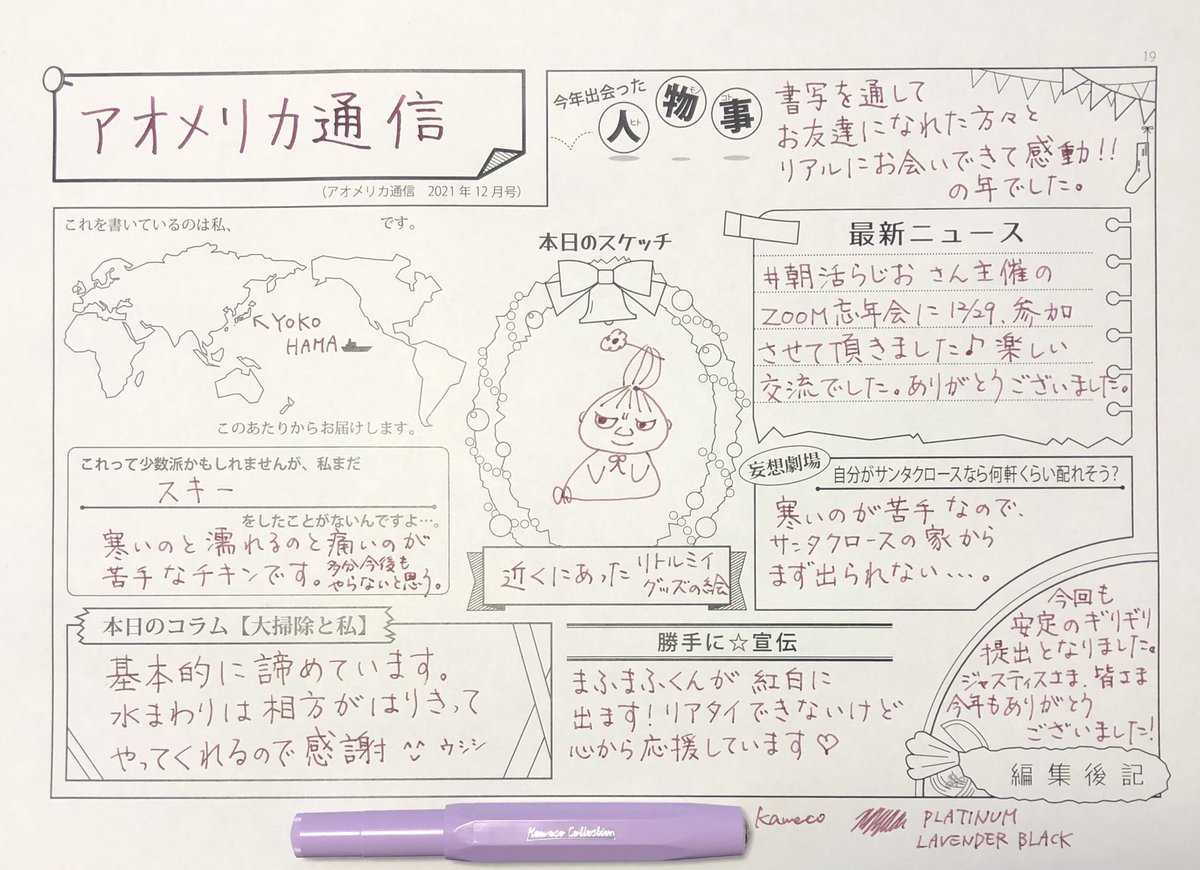 19
アオメリカ通信
(アオメリカ通信 2021年12月号)
今年出会った
人 物 事
ヒト モノ コト
書写を通して
お友達になれた方々と
リアルにお会いできて感動!!
の年でした。
これを書いているのは私、 です。
YOKO
HAMA
このあたりからお届けします。
本日のスケッチ
近くにあった リトルミイ
グッズの絵
最新ニュース
#朝活らじお さん主催の
ZOOM忘年会に12/29、参加
させて頂きました♪ 楽しい
交流でした。ありがとうございました。
これって少数派かもしれませんが、私まだ
スキー
をしたことがないんですよ…。
寒いのと濡れるのと痛いのが
苦手なチキンです。多分今後も
やらないと思う。
妄想劇場
自分がサンタクロースなら何軒くらい配れそう?
寒いのが苦手なので、
サンタクロースの家から
まず出られない…。
本日のコラム【大掃除と私】
基本的に諦めています。
水まわりは相方がはりきって
やってくれるので感謝 ^^ ウシシ
勝手に☆宣伝
まふまふくんが紅白に
出ます!リアタイできないけど
心から応援しています♡
今回も
安定のギリギリ
提出となりました。
ジャスティスさま、皆さま
今年もありがとう
ございました!
編集後記
Kaweco Collection
Kaweco PLATINUM
LAVENDER BLACK